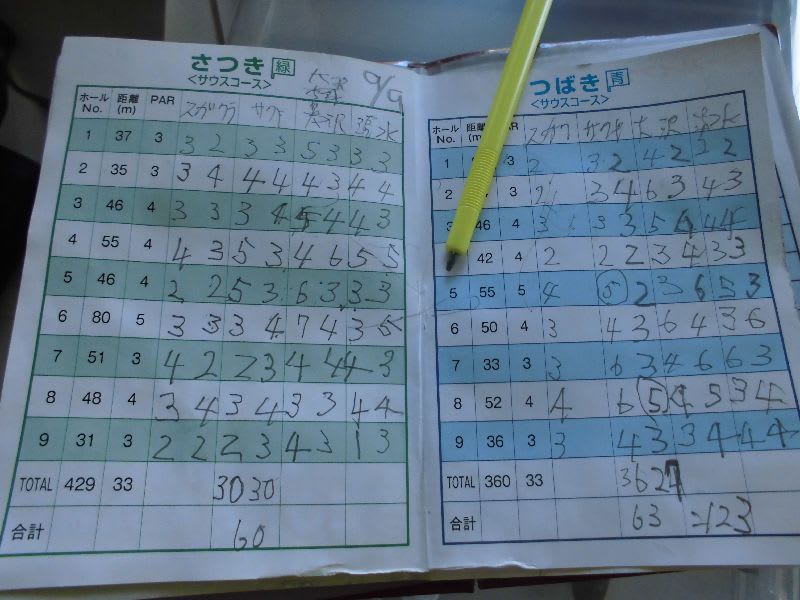 さつき 緑
<サウスコース>
9/9
ホールNo. 距離(m) PAR スガワラ サクト 長沢 清水
1 37 3 3 2 3 3 5 3 3 3
2 35 3 3 4 4 4 4 3 4 4
3 46 4 3 3 3 4 5 4 4 3
4 55 4 4 3 5 3 4 6 5 5
5 46 4 2 2 5 3 6 3 3 3
6 80 5 3 3 3 4 7 4 3 5
7 51 3 4 2 2 3 4 4 4 3
8 48 4 3 4 3 4 3 3 4 4
9 31 3 2 2 2 3 4 3 1 3
TOTAL 429 33 30 30
合計 60
つばき 青
<サウスコース>
ホールNo. 距離(m)
1 3 2 3 2 4 2 3 2
2 3 2 3 4 6 3 4 3
3 46 4 3 3 3 5 4 4 4
42 4 2 2 2 3 4 3 3
5 55 5 4 5 2 3 6 5 3
6 50 4 3 4 3 6 4 3 6
7 33 3 3 6 3 4 6 6 3
8 52 4 4 6 5 4 5 3 4
9 36 3 3 4 3 3 4 4 4
TOTAL 360 33 36 27
合計 63 =123